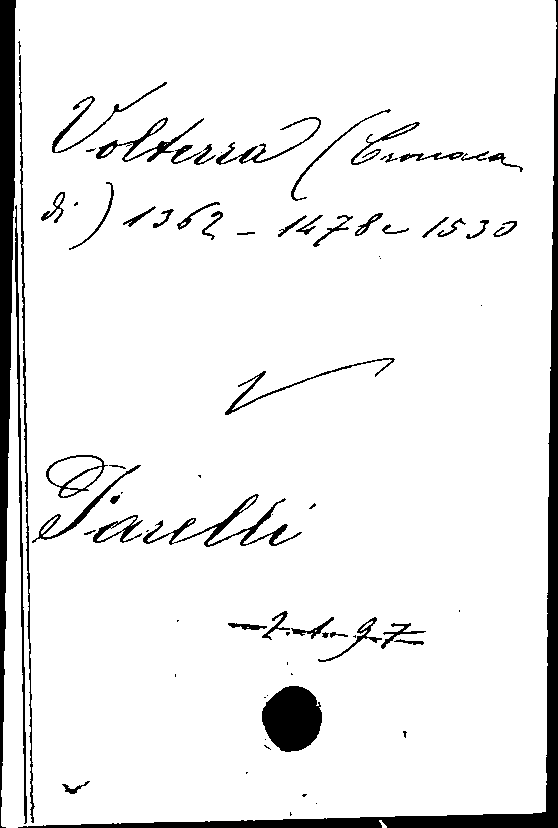 Volterra (Cronaca
di) 1362 - 1478 e 1530
V
Tarelli
2. 1. 97